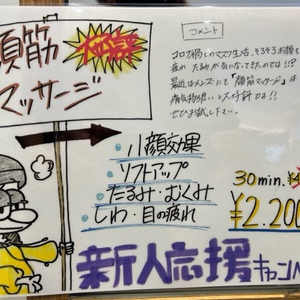 顔筋
マッサージ
大好評
コメント
コロナ禍でのマスク生活、そろそろお顔も
疲れ たるみが気になってきたのでは!!?
最近はメンズにも「顔筋マッサージ」は
痛気持ち良いと大好評です!!
ぜひお試し下さい。
・小顔効果
・リフトアップ
・たるみ・むくみ
・しわ・目の疲れ
30min.
¥2.200
新人応援キャン